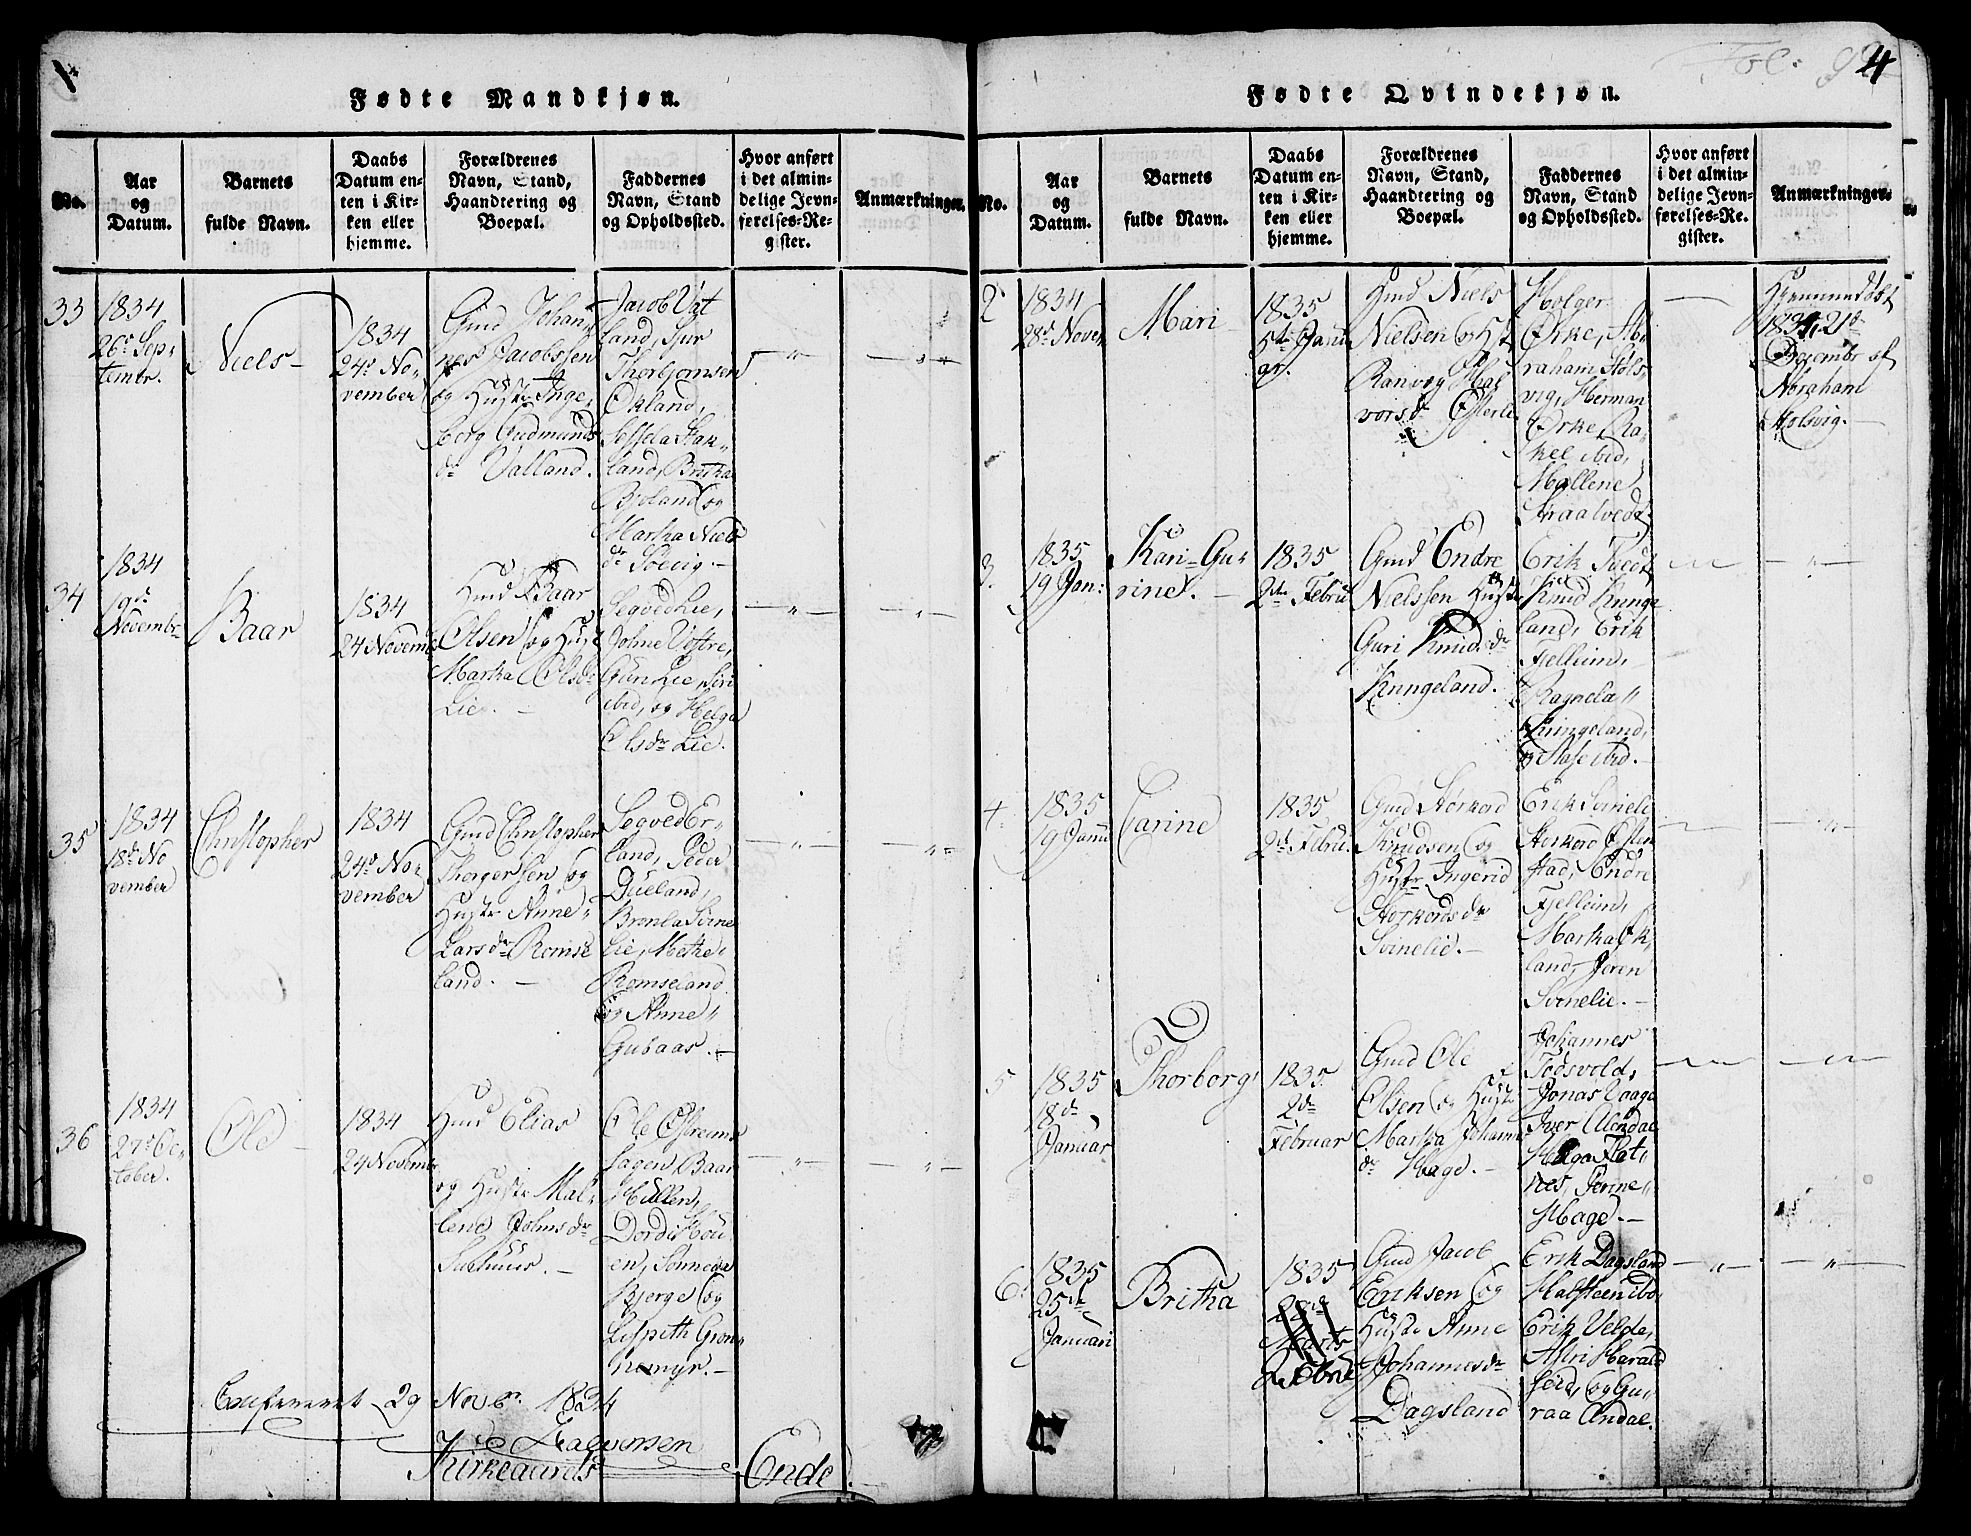 Fødte Mandkjøn.
No.
Aar
og
Datum.
Barnets
fulde Navn.
Daabs
Datum en-
ten i Kir-
ken eller
hjemme.
Forældrenes
Navn, Stand,
Haandtering og
Boepæl.
Faddernes
Navn, Stand
og Opholdssted.
Hvor anført
i det almin-
delige Jevn-
førelses-Re-
gister.
Anmærkninger.
33
1834
26de Sep-
tembr.
Niels
1834
24de No-
vember
Gmd Johan-
nes Jacobssen
og Hustr Inge-
borg Gudmunds
dr Valland.
Jacob Vat
land, Sjur
Thorbjornsen
Økland,
land,
Bjoland og
Martha Niels
dr
34
1834
19de
Novembr
Baar
1834
24 Novemb
Huusmd Baar
Olsen og Hust
Martha Olsdr
Lie.
Segved Lie,
Johne
Lie, Siri
ibid, og Helga
Olsdr Lie.
35
1834
18de No
vember
Christopher
1834
24de No-
vember
Gmd Christopher
Thorgersen og
Hustr Anne
Larsdr Romse
land.
Segved Er-
land, Peder
Dueland,
Lie, Methe
Romseland
og Anne
Gubaas.
36
1834
27de Oc-
tober.
Ole
1834
24 Novembr
Elias
og Hustr Mal-
lene Johnsdr
Ole
Baar
Hellen,
Dordi
en, Sønneva
Bjerge og
Lispeth Gron
nemyr.
29 Novbr. 1834
Halvorsen
Kirkeaards
Ende
Fol: 92
4
Fødte Qvindekjøn.
No.
Aar
og
Datum.
Barnets
fulde Navn.
Daabs
Datum en-
ten i Kir-
ken eller
hjemme.
Forældrenes
Navn, Stand,
Haandtering og
Boepæl.
Faddernes
Navn, Stand
og Opholdssted.
Hvor anført
i det almin-
delige Jevn-
førelses-Re-
gister.
Anmærkninger.
2
1834
28de Novem
Mari
1835
5te Janu
ar.
Niels
Nielsen og Hst
Ranveg Hal
vorsdr
Holger
Ørke, Ab-
raham Hols
vig, Herman
Ørke, Ra-
kel ibid,
Mallene
Hjemmedøbt
1834, 21de
Decembr af
Abraham
Holsvig.
3.
1835
19 Jan:
Kari-Gu-
rine.
1835
2de Febru
Gmd Endre
Nielssen Hustr
Guri Knudsdr
Kringeland.
Erik Tvedt,
Knud Kringe
land, Erik
Fjelleim,
Ragnela
Kringeland,
og Aase ibid.
4.
1835
19 Janu
Carine
1835
2de Febru.
Gmd Storkord
Knudsen og
Hustr Ingerid
Storkordsdr
Svinelie.
Erik Svinelie
Storkord Østen
stad, Endre
Fjelleim,
Martha Øk
land, Seren
Svinelie.
5
1835
18de
Januar
Thorborg
1835
2de
Februar
Gmd Ole
Olsen og Hustr
Martha Johanne
dr Hage.
Johannes
Todsvold,
Jonas Vaage
Iver Undal
Helga Flat
nes, Serine
Hage.
6.
1835
25de
Januari
Britha
1835
22de
Marts
2 Febru
Gmd Jacob
Eriksen og
Hustr Anne
Johannesdr
Dagsland
Erik Dagsland
Halsteen ibd,
Erik Velde,
Astri Harald
seid, og Gu-
raa Undal.